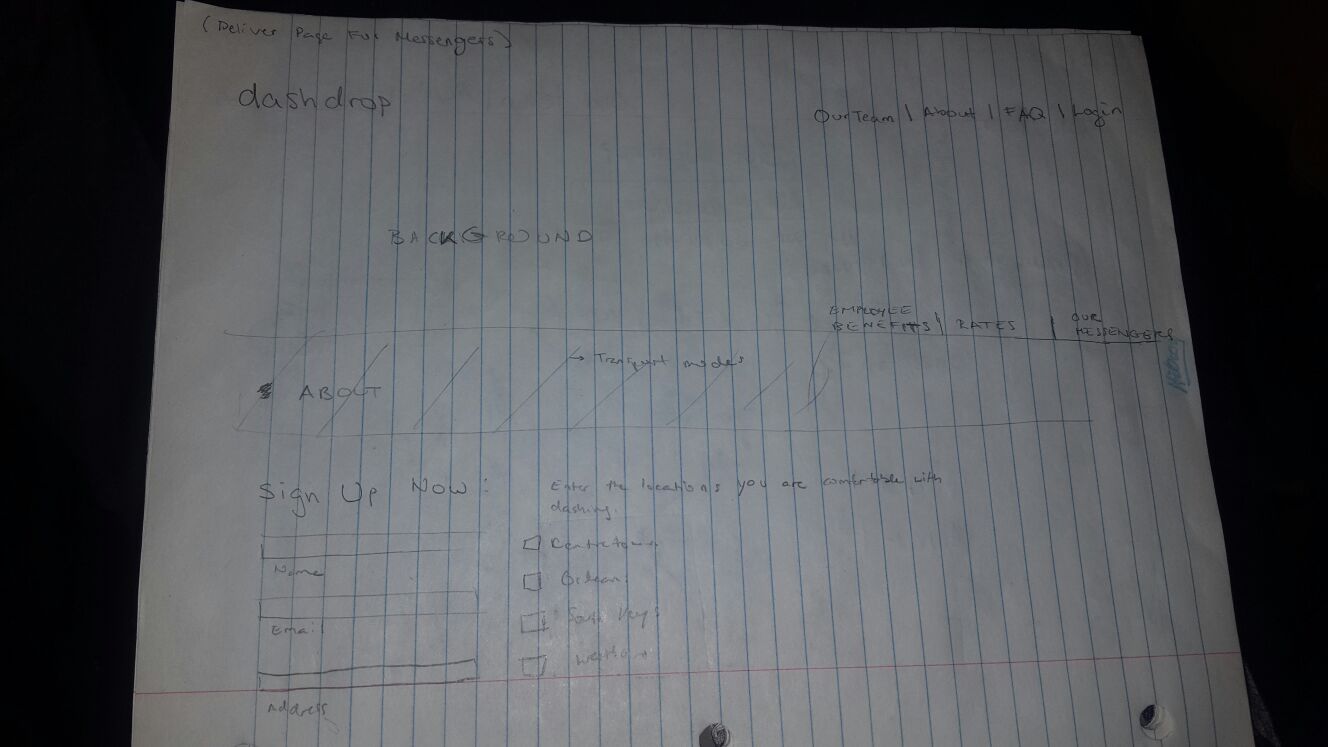 (Deliver Page For Messengers)
dashdrop
Our Team | About | FAQ | Login
BACKGROUND
EMPLOYEE
BENEFITS | RATES | OUR
MESSENGERS
→ Transport modes
ABOUT
Sign Up Now:
Enter the locations you are comfortable with
dashing.
Name
Email
Address
Centretown
Orleans
South Keys